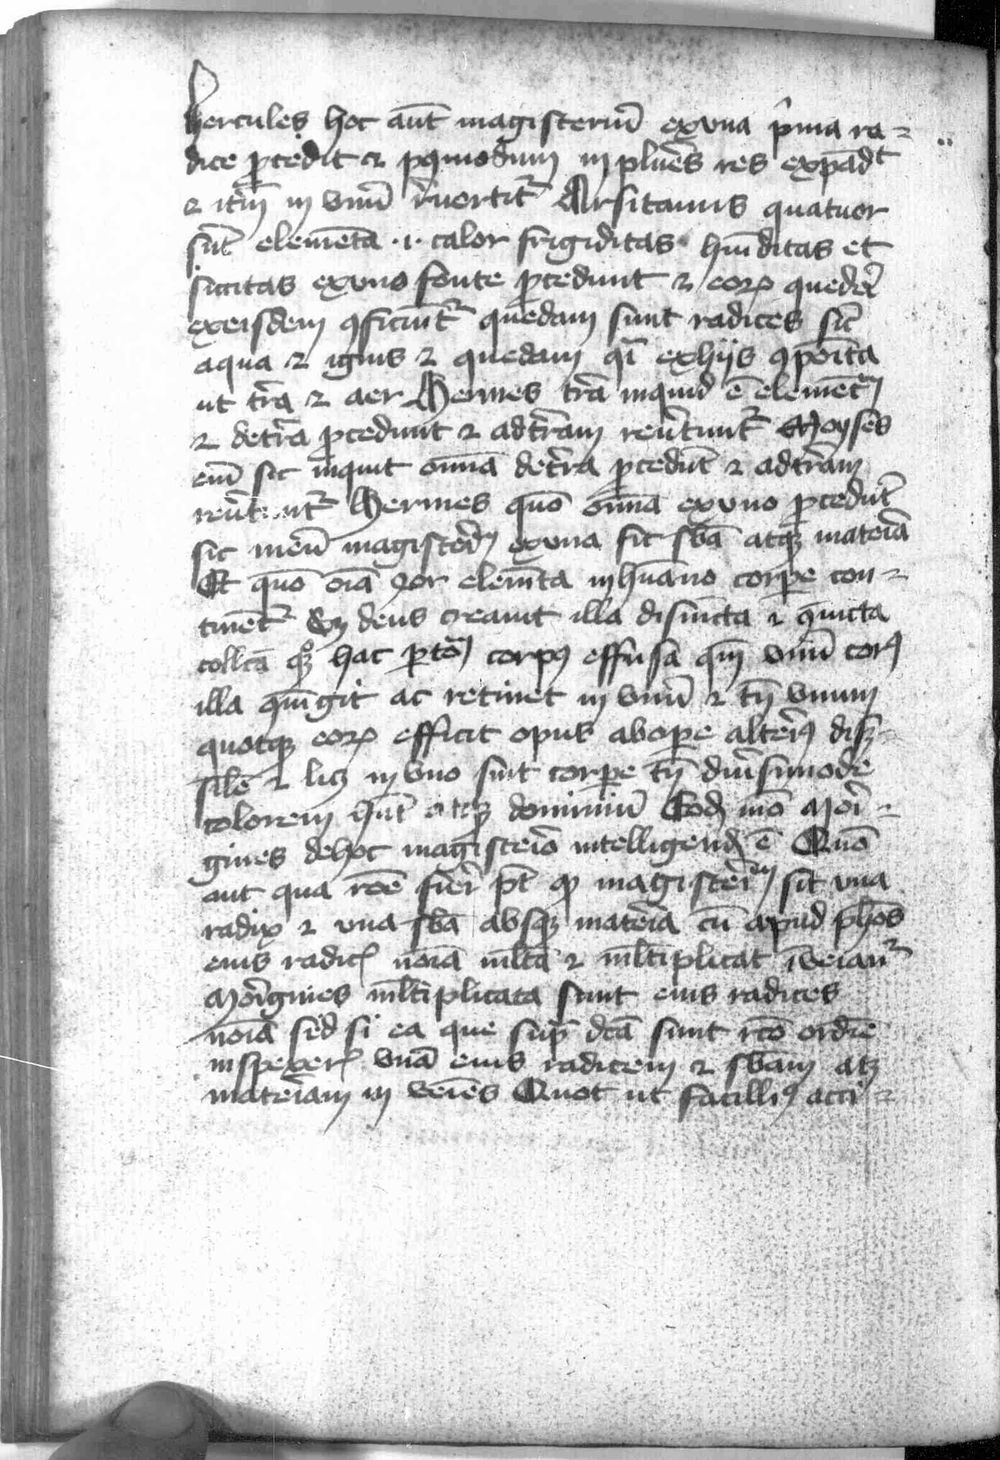 hercules hoc aūt magisteriū ex una p̄ma ra-
dice ꝓcedit ⁊ pꝰmodum in plures res expādit
⁊ itm̄ in vnū reuertit᷑ Arsitamis quatuor
sūt elemēta .i. calor frigiditas hūiditas et
siccitas ex vno fonte ꝓcedunt ⁊ eoꝝ quedā
ex eisdem ꝯficiūt᷑ quedam sunt radices sic̄
aqua ⁊ ignis ⁊ quedam qī ex hijs ꝯpoīta
ut tr̄a ⁊ aer Hermes tr̄a inquid ē elemētū
⁊ de tr̄a ꝓcedunt ⁊ ad tr̄am reu̾tunt᷑ Moyses
em̄ sic inquit om̄ia de tr̄a ꝓcedūt ⁊ ad tr̄am
reu̾tunt᷑ Hermes quō om̄ia ex vno ꝓcedūt
sic meū magisteriū ex una fit sba atqꝫ materia
Et quō oīa elemēta in hūano corpe con-
tinēt᷑ deus creauit illa disiūcta ⁊ ꝯiūcta
collcā hac corpꝰ effusa qm̄ vnū corpꝰ
illa ꝯiūgit ac retinet in vnū ⁊ tn̄ vnum
quotqꝫ eoꝝ efficit opus ab opere alteriꝰ dis-
sile ⁊ licꝫ in vno sint corpe tn̄ diu̾simode
colorem hn̄t atqꝫ dominiū Eodꝫ mō Mori-
gines de hoc magisterio intelligendū ē Quō
aut qua roē fieri pt̄ qꝫ magisteriū sit una
radix ⁊ una sba absqꝫ materia cū apud ph̄os
eius radicꝭ noīa ml̄ta ⁊ ml̄tiplicat īueian᷑
Morigines ml̄tiplicata sunt eius radices
noīa sed si ea que supᷓ dcā sunt rcō ordīe
inspexerꝭ vnā eius radicem ⁊ sbam atqꝫ
materiam inuenies Quot ut facilliꝰ acci-